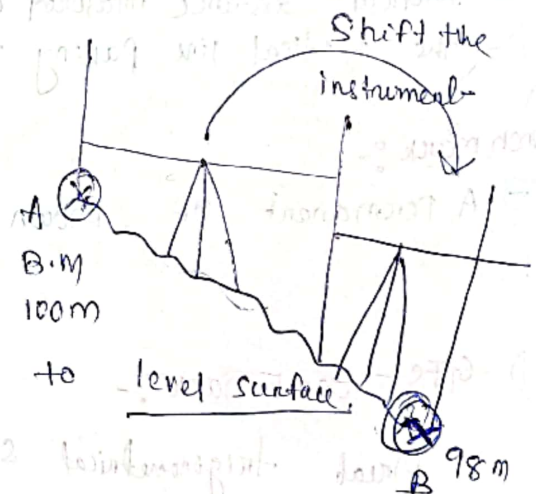 Shift the
instrument
A
B.M
100m
to level surface.
98m
B